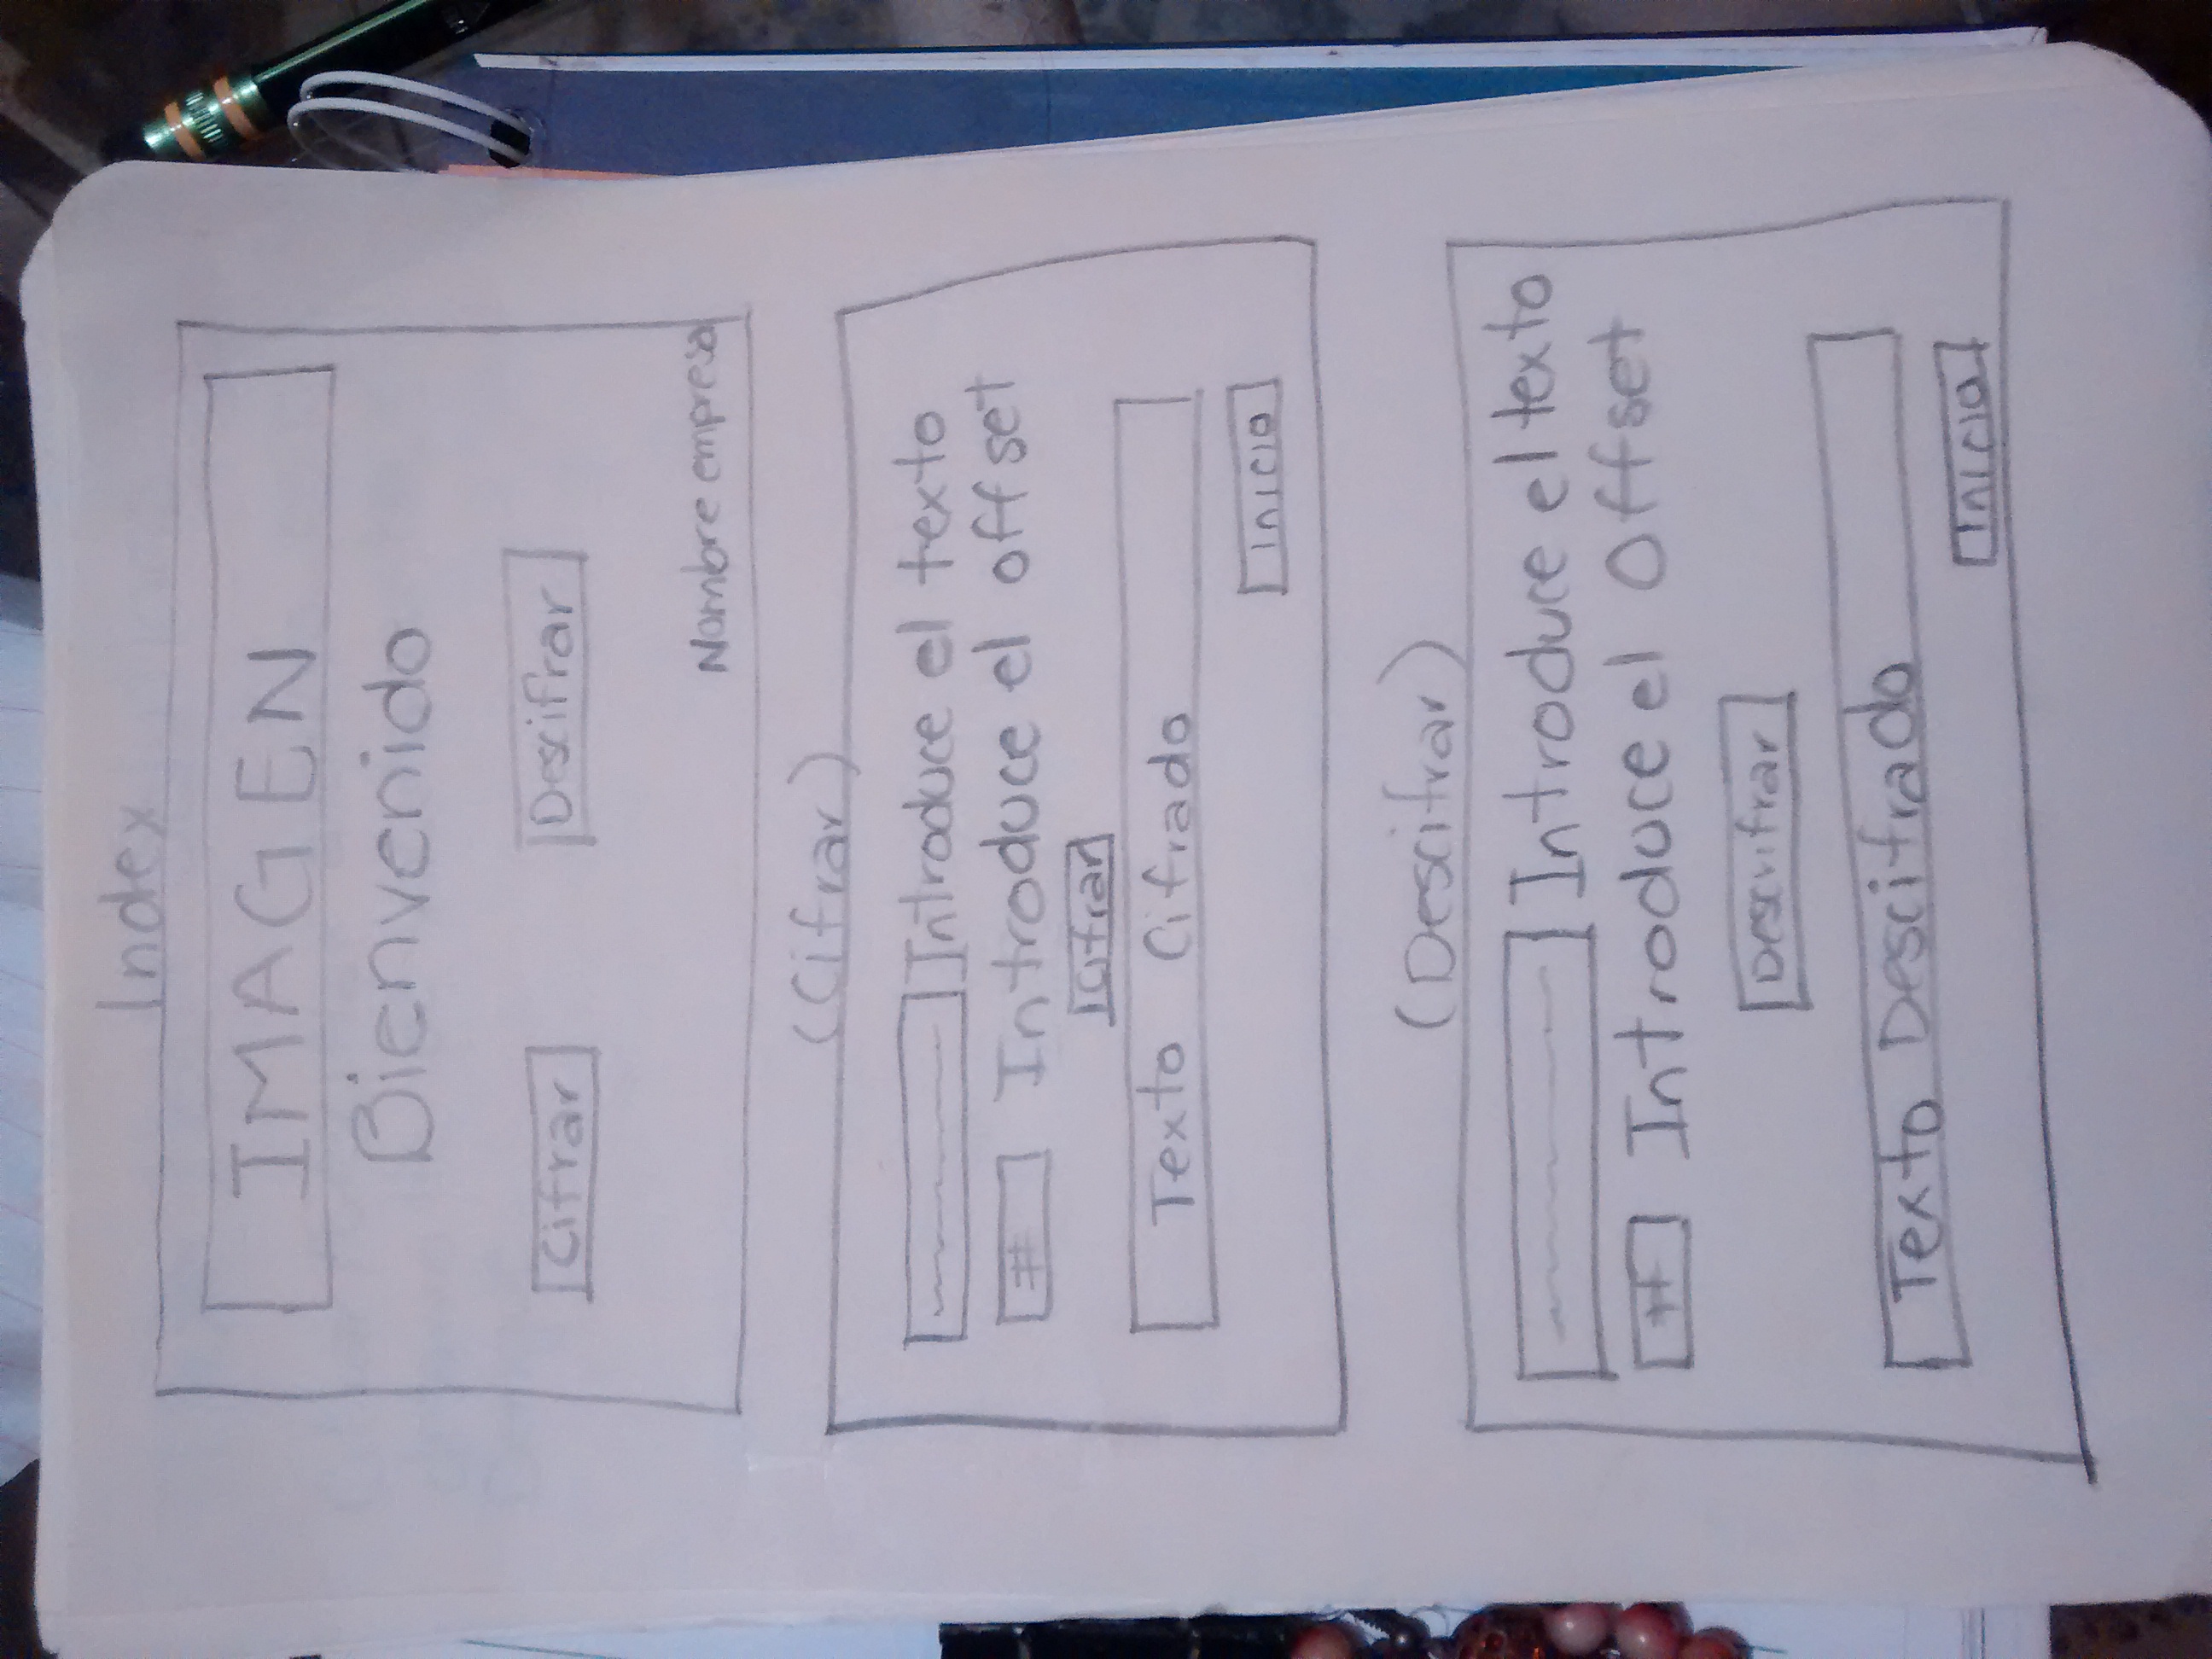 Index
IMAGEN
Bienvenido
Cifrar Descifrar
Nombre empresa
(Cifrar)
Introduce el texto
# Introduce el offset
Cifrar
Texto Cifrado
Inicio
(Descifrar)
Introduce el texto
# Introduce el Offset
Descrifrar
Texto Descifrado
Inicio